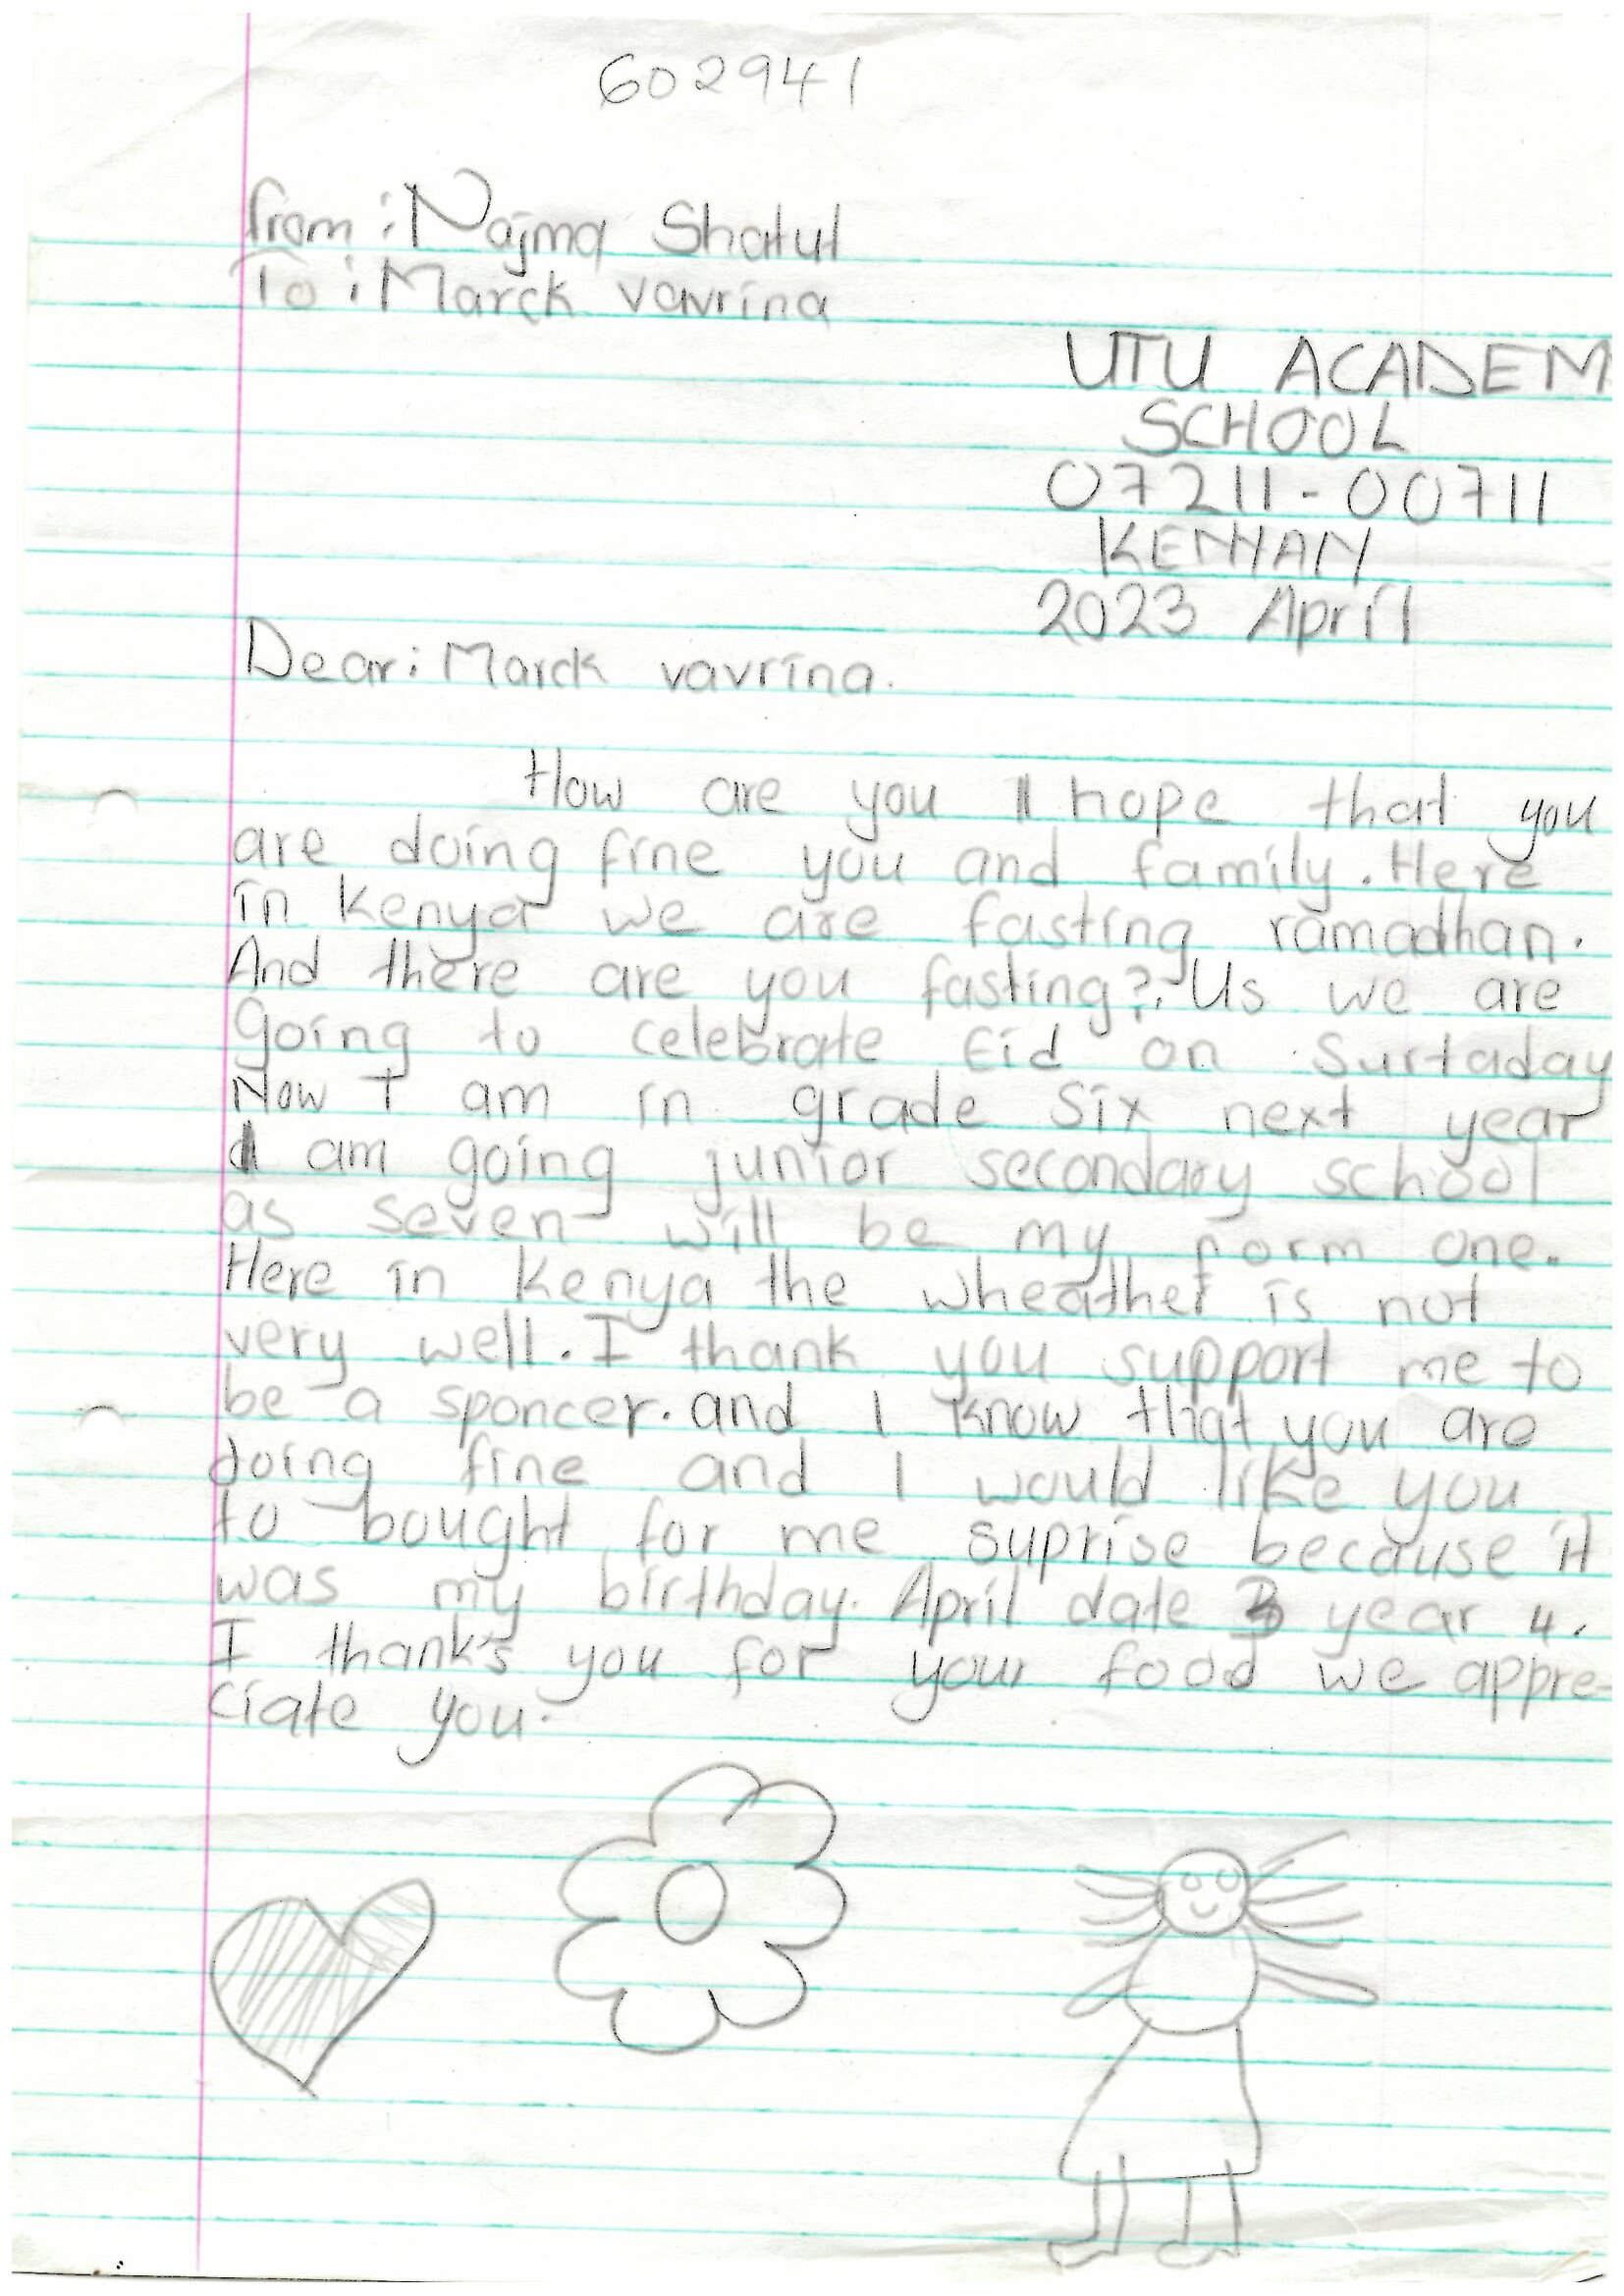 602941
from: Najma Shatul
To: Marck vavrina
UTU ACADEM
SCHOOL
07211-00711
KENHAN
2023 April
Dear: Marck vavrina.
How are you I hope that you
are doing fine you and family. Here
in Kenya we are fasting ramadhan.
And there are you fasting?. Us we are
going to celebrate Eid on Surtaday
Now I am in grade six next year
I am going junior secondary school
as seven will be my form one.
Here in Kenya the wheather is not
very well. I thank you support me to
be a sponcer. and I know that you are
doing fine and I would like you
to bought for me suprise because it
was my birthday. April date 3 year 4.
I thank's you for your food we appre-
ciate you.